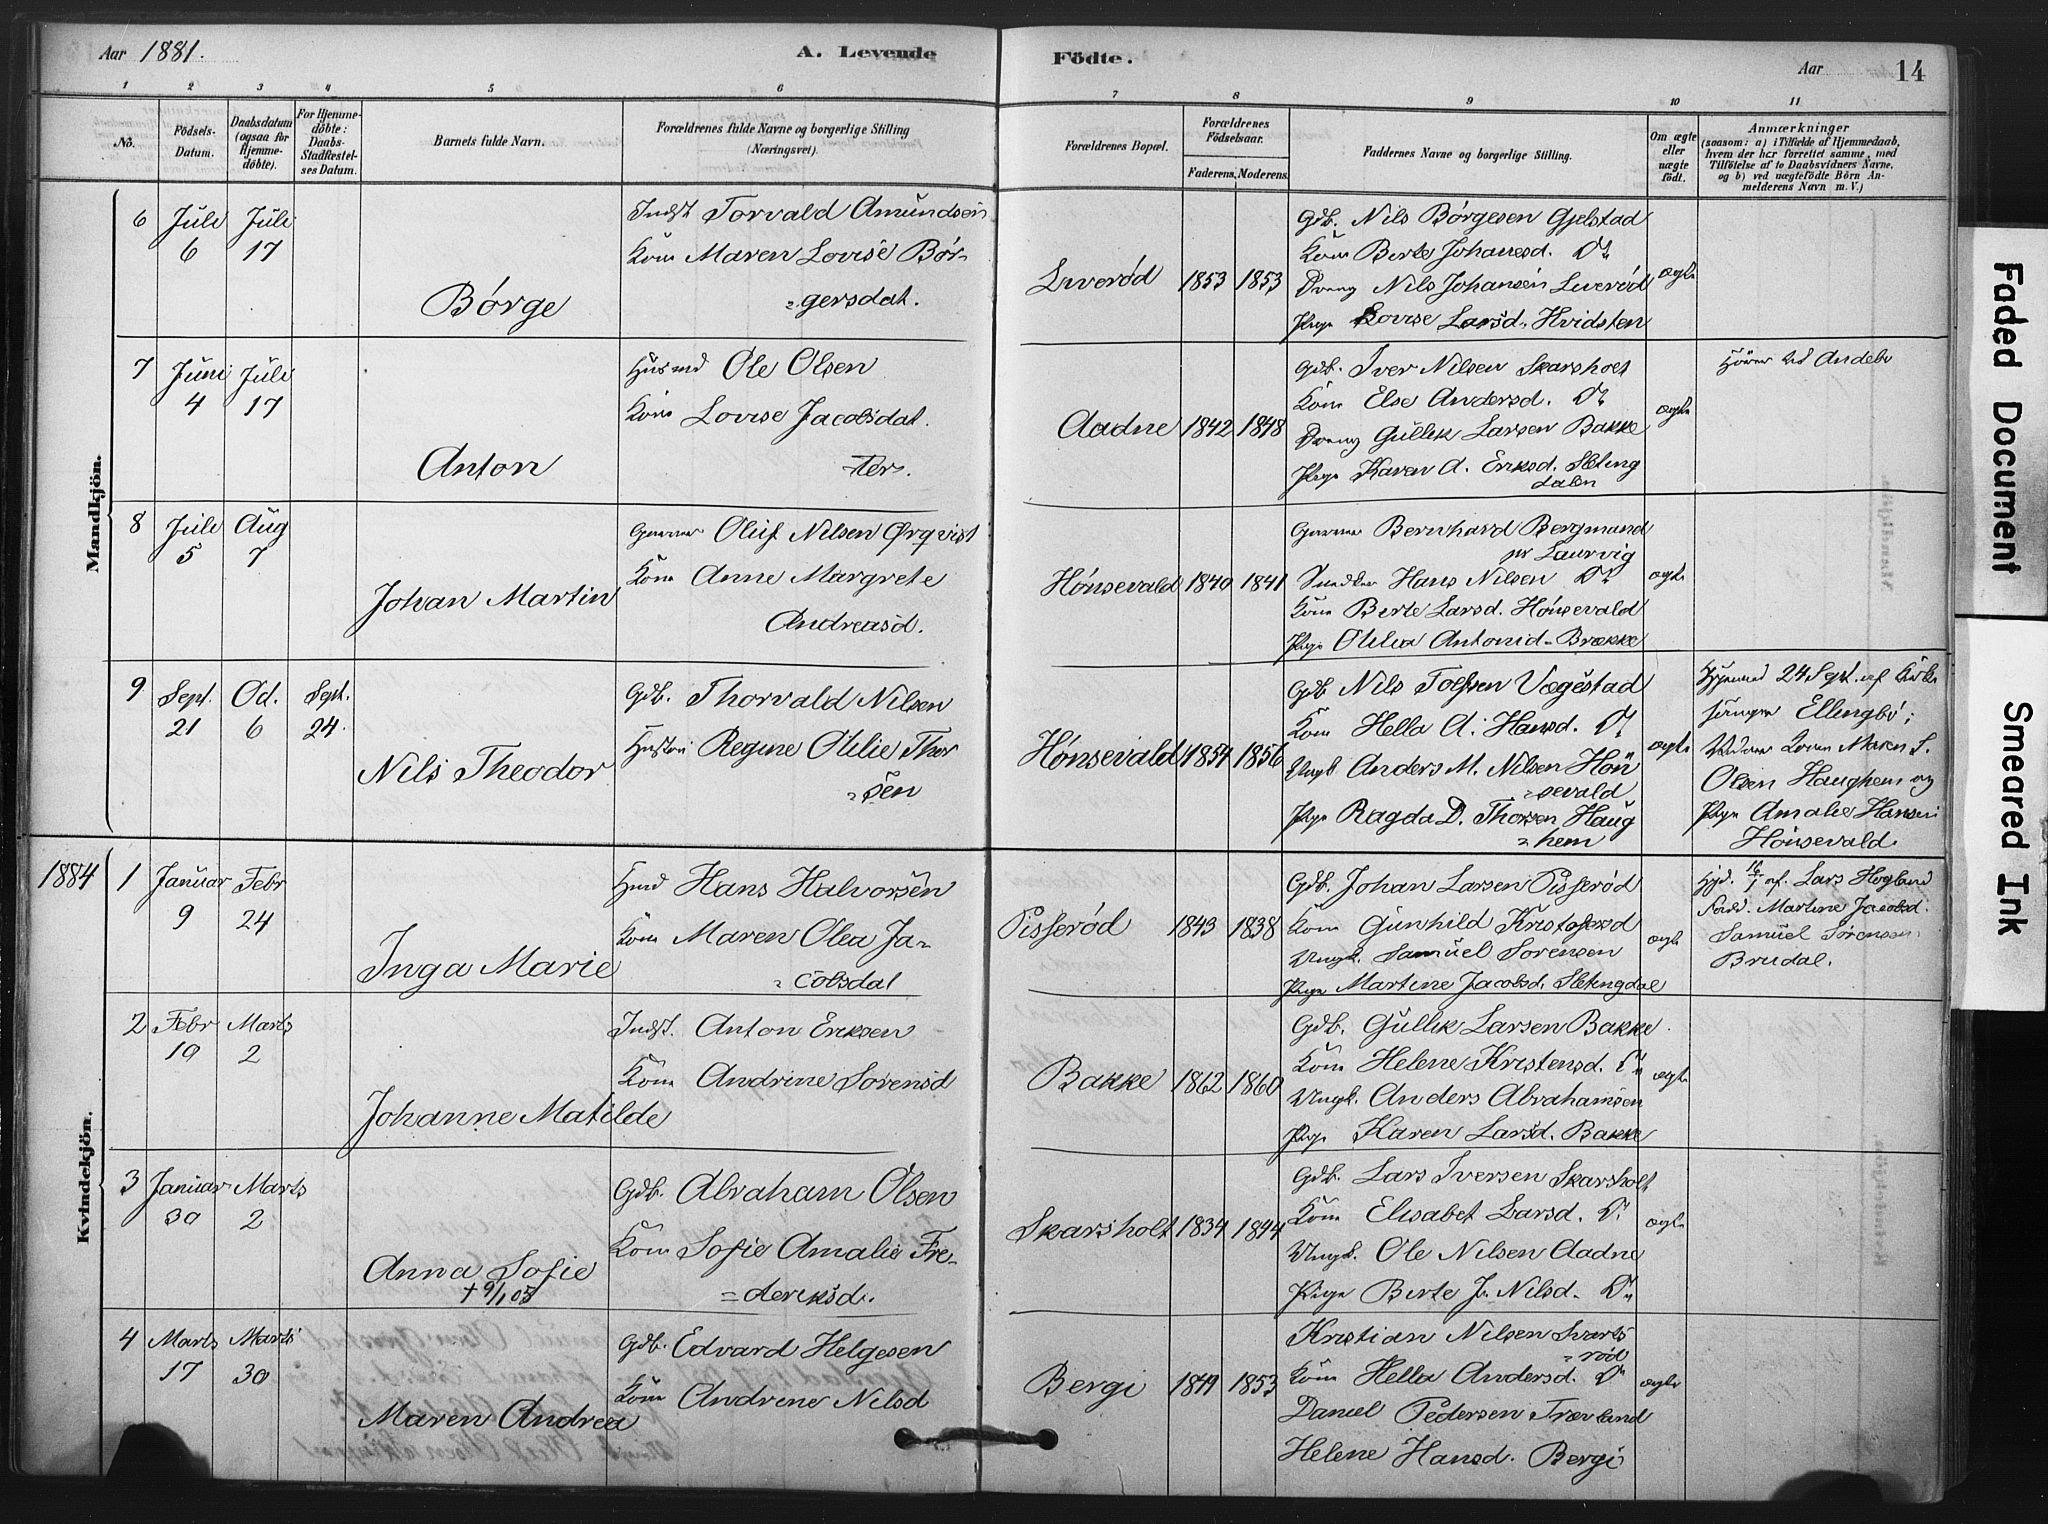 Aar 1881. A. Levende Födte. Aar 14
1 2 3 4 5 6 7 8 9 10 11
No. Födsels-Datum. Daabsdatum (ogsaa for Hjemmedöbte). For Hjemmedöbte: Daabs-Stadfæstelses Datum. Barnets fulde Navn. Forældrenes fulde Navne og borgerlige Stilling (Næringsvei). Forældrenes Bopæl. Forældrenes Födselsaar. Faderens. Moderens. Faddernes Navne og borgerlige Stilling. Om ægte eller uægte födt. Anmærkninger (saasom: a) i Tilfælde af Hjemmedaab, hvem der har forrettet samme, med Tilföielse af to Daabsvidners Navne, og b) ved uægtefödte Börn Anmelderens Navn m. V.)
Mandkjön.
6 Juli 6 Juli 17
Børge
Indst Torvald Amundsen
Kone Maren Lovise Bør-
=gersdat.
Liverød 1853 1853
Gdb. Nils Børgesen Gjelstad
Kone Berte Johansd. Do
Dreng Nils Johansen Liverød
Pige Lovise Larsd. Hvidsten
ægte
7 Juni 4 Juli 17
Anton
Husmd Ole Olsen
Kone Lovise Jacobsdat
ter.
Aadne 1842 1848
Gdb. Iver Nilsen Skarsholt
Kone Else Andersd. Do
Dreng Gullik Larsen Bakke
Pige Karen A. Eriksd. Sleting
dalen
ægte
Hører til Andebo
8 Juli 5 Aug 7
Johan Martin
Garver Oluf Nilsen Ørqvist
Kone Anne Margrete
Andreasd.
Hønsevald 1840 1841
Garver Bernhard Bergmand
pr Laurvig
Snedker Hans Nilsen Do
Kone Berte Larsd. Hønsevald
Pige Otilia Antonid. Brække
ægte
9 Sept. 21 Oct. 6 Sept. 24
Nils Theodor
Gdb. Thorvald Nilsen
Hustru Regine Otilie Thor
=sen
Hønsevald 1854 1856
Gdb Nils Tolfsen Vegestad
Kone Hella A. Hansd. Do
Ungk. Anders M. Nilsen Høn
=sevald
Pige Ragda D. Thorsen Haug
=hem
ægte
24 Sept. af Kirke
sanger Ellingbø;
Maren S.
Olsen Haughem og
Pige Amalie Hansen
Hønsevald.
1884
Kvindekjön.
1 Januar 9 Febr 24
Inga Marie
Hmd Hans Halvorsen
Kone Maren Olea Ja-
=cobsdat
Pisserød 1843 1838
Gdb. Johan Larsen Pisserød
Kone Gunhild Kristofersd
Ungk. Samuel Sørensen
Pige Martine Jacobsd. Sletingdal
ægte
Hjd. 16/1 af Lars Hogland
Fadd. Martine Jacobsd.
Samuel Sørensen
Brudal.
2 Febr 19 Marts 2
Johanne Matilde
Indst. Anton Eriksen
Kone Andrine Sorensd
Bakke 1862 1860
Gdb. Gullik Larsen Bakke
Kone Helene Kristensd. Do
Ungk. Anders Abrahamsen
Pige Karen Larsd. Bakke
ægte
3 Januar 30 Marts 2
Anna Sofie
+ 9/1 05
Gdb. Abraham Olsen
Kone Sofie Amalie Fre-
=deriksd.
Skarsholt 1834 1844
Gdb. Lars Iversen Skarsholt
Kone Elisabet Larsd. Do
Ungk. Ole Nilsen Aadne
Pige Berte J. Nilsd. Do
ægte
4 Marts 17 Marts 30
Maren Andrea
Gdb. Edvard Helgesen
Kone Andrene Nilsd
Bergi 1849 1853
Kristian Nilsen Svarts
=rød
Kone Hella Andersd. Do
Daniel Pedersen Træland
Helene Hansd. Bergi
ægte
Faded Document
Smeared Ink